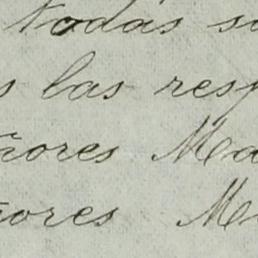 todas s
s las resp
ñores Ma
ñores M